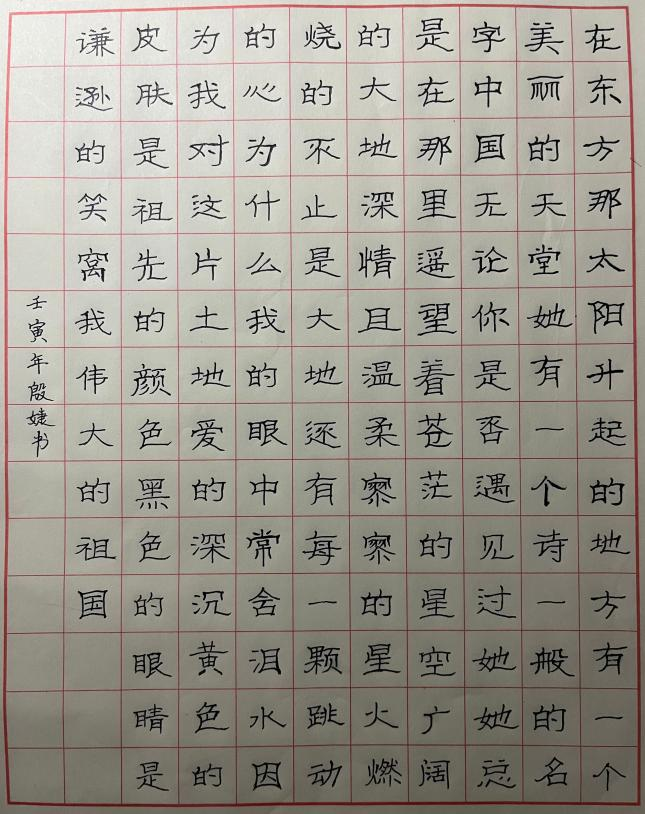 在东方那太阳升起的地方有一个
美丽的天堂她有一个诗一般的名
字中国无论你是否遇见过她她总
是在那里遥望着苍茫的星空广阔
的大地深情且温柔寥寥的星火燃
烧的不止是大地还有每一颗跳动
的心为什么我的眼中常含泪水因
为我对这片土地爱的深沉黄色的
皮肤是祖先的颜色黑色的眼睛是
谦逊的笑窝我伟大的祖国
壬寅年殷婕书